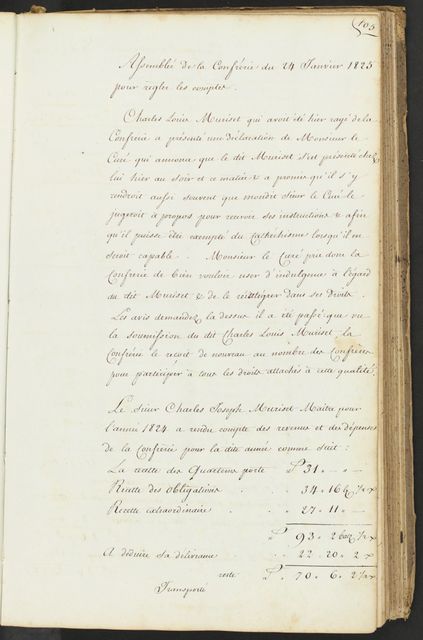 105
Assemblée de la Confrérie du 24 Janvier 1825
pour règler les comptes.
Charles Louis Muriset qui avoit été hier rayé de la
Confrérie a présenté une Déclaration de Monsieur le
Curé qui annonce que le dit Muriset s'est présenté chez
lui hier au soir et ce matin & a promis qu'il s'y
rendroit aussi souvent que mondit Sieur le Curé le
jugeroit à propos pour recevoir des instructions & afin
qu'il puisse être exempté du Cathéchisme lorsqu'il en
seroit capable. Monsieur le Curé prie donc la
Confrérie de bien vouloir user d'indulgence à l'égard
du dit Muriset & de le réintégrer dans ses Droits.
Les avis demandez là dessus il a été passé que vu
la soumission du dit Charles Louis Muriset, la
Confrérie le reçoit de nouveau au nombre des Confrères
pour participer à tous les droits attachés à cette qualité.
Le Sieur Charles Joseph Muriset Maitre pour
l'année 1824 a rendu compte des revenus et des dépenses
de la Confrérie pour la dite année comme suit :
La recette des Quarterons porte £ 31 . " . "
Recette des Obligations . . 34 . 16
Recette extraordinaire . . 27 . 11 . "
£ 93 . 2
à déduire sa délivrance . . 22 . 20 . 2
reste £ 70 . 6 . 2
Transporté